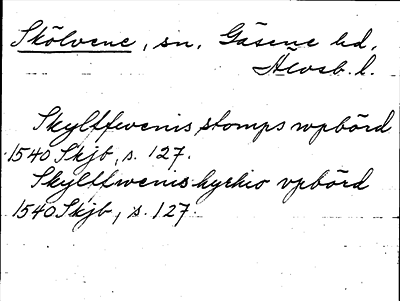 Skölvene, sn. Gäsene hd.
Älvsb. l.
Skylffwenis stomps wpbörd
1540 Skjb, s. 127.
Skylffwenis kyrkio vpbörd
1540 Skjb, s. 127.